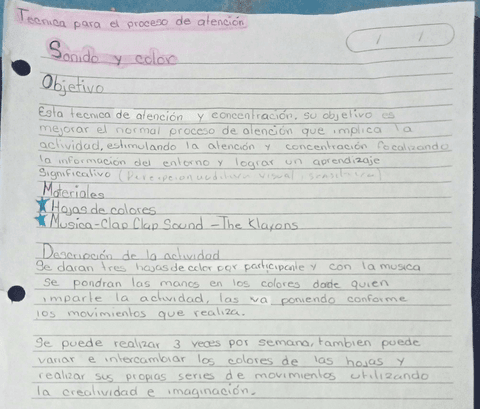 Tecnica para el proceso de atención
Sonido y color
Objetivo
Esta tecnica de atención y concentración, su objetivo es
mejorar el normal proceso de atención que implica la
actividad, estimulando la atención y concentración focalizando
la información del entorno y lograr un aprendizaje
significativo (Percepcion auditiva visual,
Materiales
Hojas de colores
Musica-Clap Clap Sound - The Klaxons
Descripción de la actividad
Se daran tres hojas de color por participante y con la musica
se pondran las manos en los colores donde quien
imparte la actividad, las va poniendo conforme
los movimientos que realiza.
Se puede realizar 3 veces por semana, tambien puede
variar e intercambiar los colores de las hojas y
realizar sus propias series de movimientos utilizando
la creatividad e imaginación.